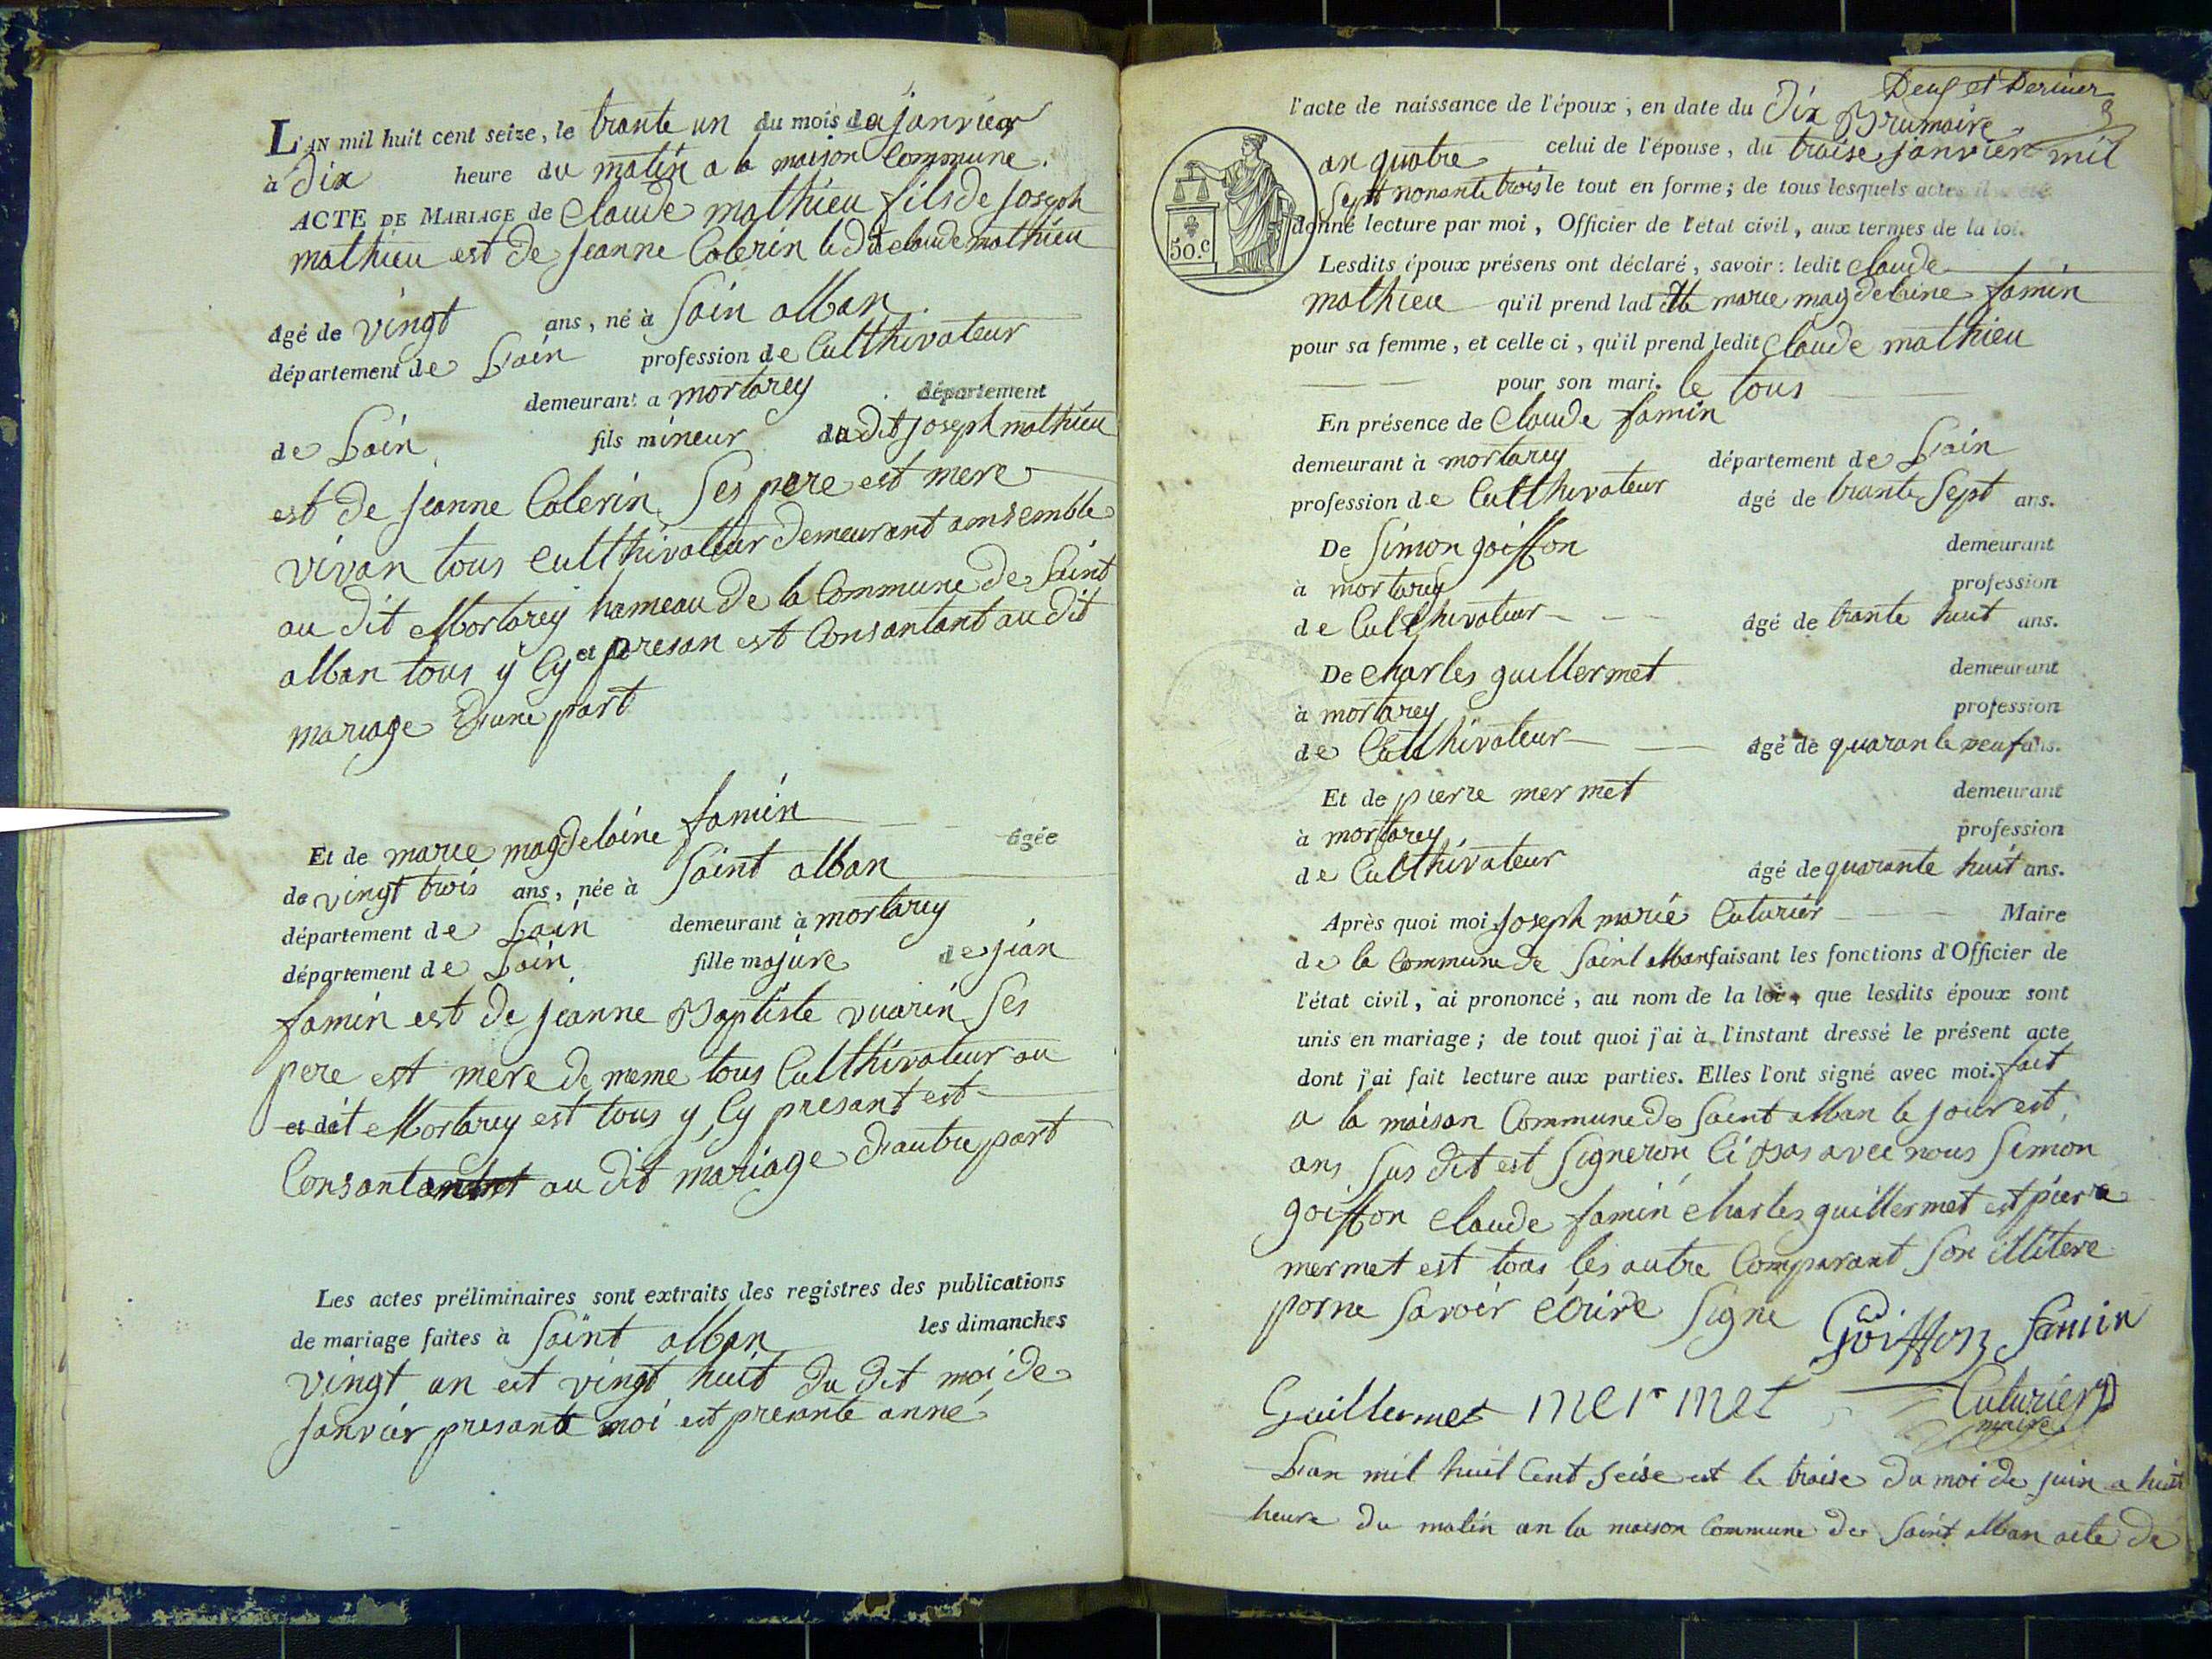 L'AN mil huit cent seize, le trante un du mois de janvier
à dix heure du matin a la maison Commune.
ACTE DE MARIAGE de Claude mathieu fils de joseph
mathieu est de jeanne Colerin le dit claude mathieu
âgé de vingt ans, né à Sain alban
département de Lain profession de Cultthivateur
demeurant a mortarey département
de Lain fils mineur du dit joseph mathieu
est de jeanne Colerin Ses pere est mere
vivan tous cultthivateur demeurant ansemble
au dit Mortarey hameau de la Commune de Saint
alban tous y Cy et presan est Consantant au dit
mariage D'une part
Et de marie magdelaine famin âgée
de vingt trois ans, née à Saint alban
département de Lain demeurant à mortarey
département de Lain fille majure de jean
famin est de jeanne Baptiste vuarin Ses
pere est mere de meme tous Cultthivateur au
et dit Mortarey est tous y Cy presant est
Consantant au dit mariage d'autre part
Les actes préliminaires sont extraits des registres des publications
de mariage faites à Saint alban les dimanches
vingt un est vingt huit du dit moi de
janvier presant moi est presante anné
Deuf et Dernier
l'acte de naissance de l'époux, en date du dix Brumaire
an quatre celui de l'épouse, du traise janvier mil
Sept nonante trois le tout en forme; de tous lesquels actes il a été
donné lecture par moi, Officier de l'état civil, aux termes de la loi.
50.C
Lesdits époux présens ont déclaré, savoir: ledit Claude
mathieu qu'il prend lad tte marie magdelaine famin
pour sa femme, et celle ci, qu'il prend ledit Claude mathieu
pour son mari. le tous
En présence de Claude famin
demeurant à mortarey département de Lain
profession de Cultthivateur âgé de trante Sept ans.
De Simon goiffon demeurant
à mortarey profession
de Cultthivateur âgé de trante huit ans.
De Charles guillermet demeurant
à mortarey profession
de Cultthivateur âgé de quarante neuf ans.
Et de pierre mermet demeurant
à mortarey profession
de Cultthivateur âgé de quarante huit ans.
Après quoi moi Joseph marie Cuturier Maire
de la Commune de Saint alban faisant les fonctions d'Officier de
l'état civil, ai prononcé, au nom de la loi, que lesdits époux sont
unis en mariage; de tout quoi j'ai à l'instant dressé le présent acte
dont j'ai fait lecture aux parties. Elles l'ont signé avec moi. fait
a la maison Commune de Saint alban le jour est
ans Sus dit est Signeron Ci Bas avec nous Simon
goiffon Claude famin Charles guillermet est pierre
mermet est tous les autre Comparant Son illitere
porne savoir écrire Signe
Goiffon famin
Guillermet mermet Cuturier
maire
Lan mil huit Cent seise est le traise du moi de juin a huit
heure du matin an la maison Commune de Saint alban acte de